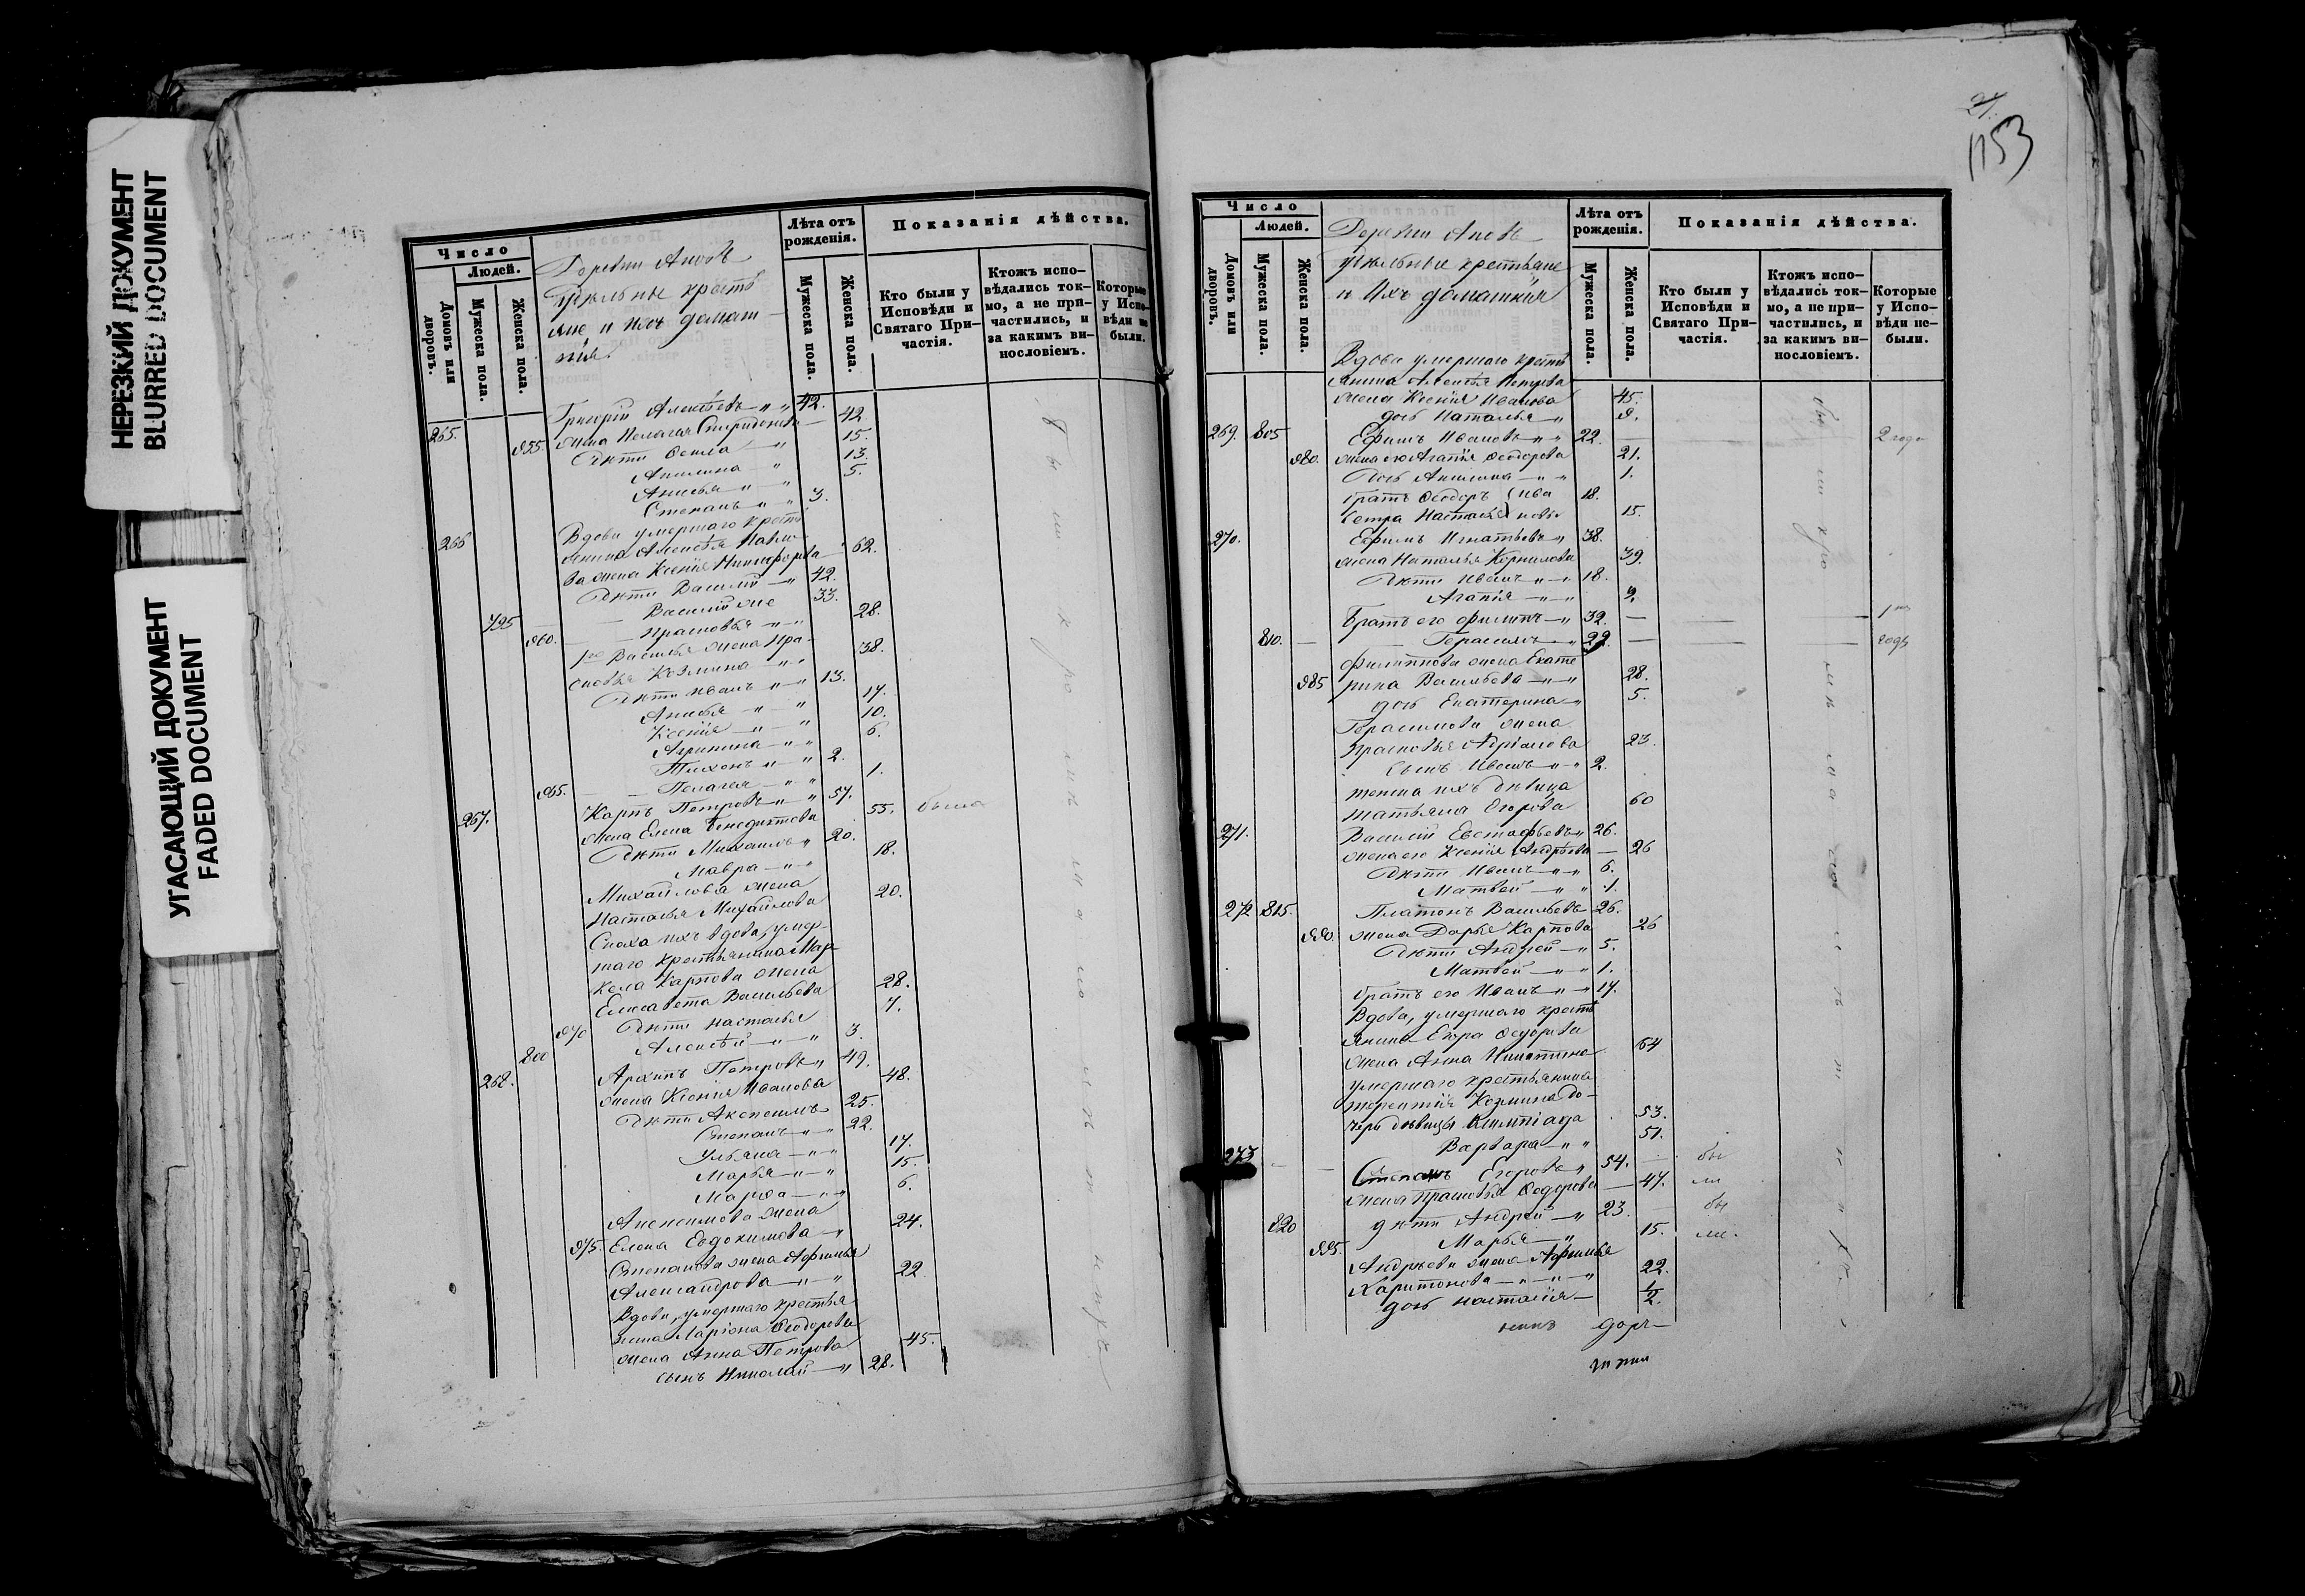 НЕРЕЗКИЙ ДОКУМЕНТ
BLURRED DOCUMENT
УГАСАЮЩИЙ ДОКУМЕНТ
FADED DOCUMENT
Число
Людей.
Домовъ или дворовъ.
Мужеска пола.
Женска пола.
Деревни
крестья
не и ихъ домаш-
нія.
Лѣта отъ рожденія.
Мужеска пола.
Женска пола.
Показанія дѣйства.
Кто были у Исповѣди и Святаго При-частія.
Ктожъ испо-вѣдались ток-мо, а не при-частились, и за какимъ ви-нословіемъ.
Которые у Испо-вѣди не были.
265. Григорій Алексѣевъ 42.
955. жена Пелагея Спиридонова 42
Дѣти 15.
Акилина 13.
Анисья 5.
Степанъ 3.
266 Вдова умершаго крестья
янина Алексѣя Павло
ва жена Ксенія Никифорова 62.
Дѣти Василій 42.
795 Василій же 33.
960. Прасковья 28.
1го Василья жена Пра-
сковья Козмина 38.
Дѣти Иванъ 13.
Анисья 17.
Ксенія 10.
Агрипина 6.
Тихонъ 2.
965. Пелагея 1.
267. Карпъ Петровъ 57.
жена Елена Бенедиктова 55. была
Дѣти Михаилъ 20.
Мавра 18.
Михайлова жена
Настасья Михайлова 20.
Сноха ихъ вдова, умер-
шаго крестьянина Мар-
кела Карпова жена
Елисавета Васильева 28.
970 Дѣти Настасья 7.
800 Алексѣй 3.
268. Архипъ Петровъ 49.
жена Ксенія Иванова 48.
Дѣти 25.
Степанъ 22.
Ульяна 17.
Марья 15.
Марѳа 6.
жена
975. Елена Евдокимова 24.
Степанова жена Афимья
Александрова 22
Вдова, умершаго крестья
нина Ларіона Ѳеодорова
жена Анна Петрова 45.
сынъ Николай 28.
1153
Число
Людей.
Домовъ или дворовъ.
Мужеска пола.
Женска пола.
Деревни
крестьяне
и ихъ домашнія
Лѣта отъ рожденія.
Мужеска пола.
Женска пола.
Показанія дѣйства.
Кто были у Исповѣди и Святаго При-частія.
Ктожъ испо-вѣдались ток-мо, а не при-частились, и за какимъ ви-нословіемъ.
Которые у Испо-вѣди не-были.
Вдова умершаго крестья
янина Алексѣя Петрова
жена Ксенія Иванова 45.
дочь Наталья 9.
269. 805 Ефимъ Ивановъ 22. 2 года
980. жена его Агапія Ѳеодорова 21.
Дочь Акилина 1.
братъ Ѳеодоръ Ива 18.
сестра Настасья новы 15.
270. Ефимъ Игнатьевъ 38.
жена Наталья Корнилова 39.
Дѣти Иванъ 18.
Агапія 9.
Братъ его Филиппъ 32. 1
810. Герасимъ 29. годъ
Филиппова жена Екате
985 рина Васильева 28.
дочь Екатерина 5.
Герасимова жена
Прасковья Адріанова 23.
сынъ Иванъ 2.
тетка ихъ дѣвица
Татьяна Егорова 60
271. Василій Евстафьевъ 26.
жена его Ксенія Андрѣева 26
Дѣти Иванъ 6.
Матвѣй 1.
272 815. Платонъ Васильевъ 26.
990. жена Дарья Карпова 26
Дѣти Андрей 5.
Матвѣй 1.
братъ его Иванъ 17.
Вдова, умершаго кресть
янина Егора Ѳедорова
жена Анна Никитина 64
умершаго крестьянина
Терентія Козмина до-
чери дѣвицы Олимпіада 53.
Варвара 51.
273 Степанъ Егоровъ 54. бы
жена Прасковья Ѳедорова 47. ли
820 дѣти Андрей 23. бы
995. Марья 15. ли.
Андрѣева жена Афимья
Харитонова 22.
дочь Настасія 1/2.